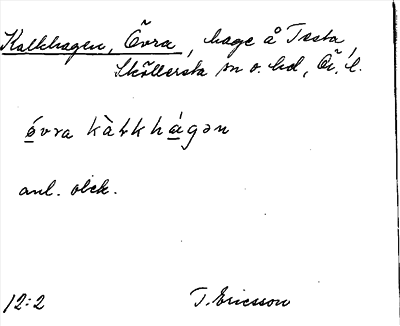 Kalkhagen, Övra, hage å Tsta
Sköllersta sn o. hd, Ö.l.
övra kàtkhágən
anl. obek.
12:2 T. Ericsson